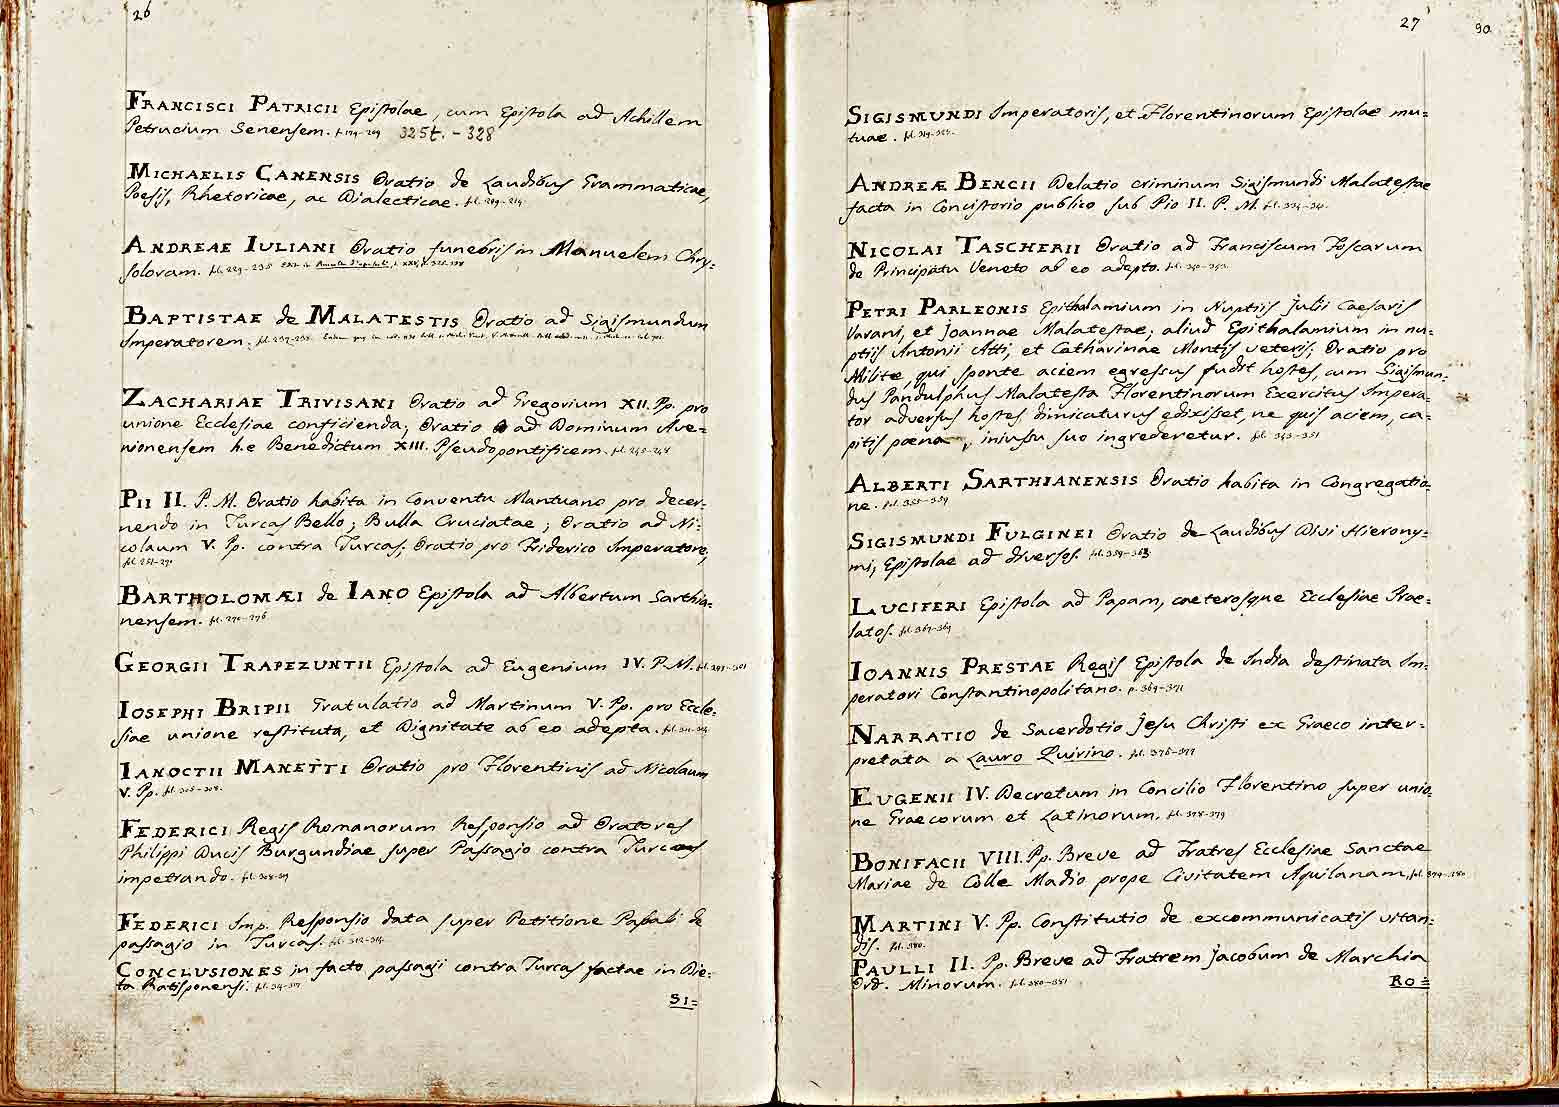 26
FRANCISCI PATRICII Epistolae, cum Epistola ad Achillem
Petrucium Senensem. 325t. - 328
MICHAELIS CANENSIS Oratio de Laudibus Grammaticae,
Poesis, Rhetoricae, ac Dialecticae.
ANDREAE IULIANI Oratio funebris in Manuelem Chry=
soloram. fol. 229-235
BAPTISTAE de MALATESTIS Oratio ad Sigismundum
Imperatorem.
ZACHARIAE TRIVISANI Oratio ad Gregorium XII. Pp. pro
unione Ecclesiae conficienda; Oratio ad Dominum Ave=
nionensem h.e Benedictum XIII. Pseudopontificem.
PII II. P. M. Oratio habita in Conventu Mantuano pro decer=
nendo in Turcas Bello; Bulla Cruciatae; Oratio ad Ni=
colaum V. Pp. contra Turcas. Oratio pro Friderico Imperatore,
BARTHOLOMÆI de IANO Epistola ad Albertum Sarthia=
nensem.
GEORGII TRAPEZUNTII Epistola ad Eugenium IV. P. M.
IOSEPHI BRIPII Gratulatio ad Martinum V. Pp. pro Eccle=
siae unione restituta, et Dignitate ab eo adepta.
IANOCTII MANETTI Oratio pro Florentinis ad Nicolaum
V. Pp.
FEDERICI Regis Romanorum Responsio ad Oratores
Philippi Ducis Burgundiae super Passagio contra Turcas
impetrando.
FEDERICI Imp. Responsio data super Petitione Passali de
passagio in Turcas.
CONCLUSIONES in facto passagi contra Turcas factae in Die=
ta Ratisponensi.
SI=
27
90
SIGISMUNDI Imperatoris, et Florentinorum Epistolae mu=
tuae.
ANDREÆ BENCII Delatio criminum Sigismundi Malatestae
facta in Concistorio publico sub Pio II. P. M.
NICOLAI TASCHERII Oratio ad Franciscum Foscarum
de Principatu Veneto ab eo adepto.
PETRI PARLEONIS Epithalamium in Nuptiis Julii Caesaris
Varani, et Joannae Malatestae; aliud Epithalamium in nu=
ptiis Antonii Atti, et Catharinae Montis veteris; Oratio pro
Milite, qui sponte aciem egressus fudit hostes, cum Sigismun=
dus Pandulphus Malatesta Florentinorum Exercitus Impera=
tor adversus hostes dimicaturus edixisset, ne quis aciem, ca=
pitis poena, iniussu suo ingrederetur. fol. 343-351
ALBERTI SARTHIANENSIS Oratio habita in Congregatio=
ne. fol. 355-359
SIGISMUNDI FULGINEI Oratio de Laudibus Divi Hierony=
mi; Epistolae ad diversos. fol. 359-363
LUCIFERI Epistola ad Papam, caeterosque Ecclesiae Prae=
latos. fol. 367-369
IOANNIS PRESTAE Regis Epistola de India destinata Im=
peratori Constantinopolitano. p. 369-371
NARRATIO de Sacerdotio Jesu Christi ex Graeco inter=
pretata a Lauro Quirino. fol. 376-377
EUGENII IV. Decretum in Concilio Florentino super unio=
ne Graecorum et Latinorum. fol. 378-379
BONIFACII VIII. Pp. Breve ad Fratres Ecclesiae Sanctae
Mariae de Colle Madio prope Civitatem Aquilanam, fol. 379-380
MARTINI V. Pp. Constitutio de excommunicatis vitan=
dis. fol. 380.
PAULLI II. Pp. Breve ad Fratrem Jacobum de Marchia
Ord. Minorum. fol. 380-381
RO=